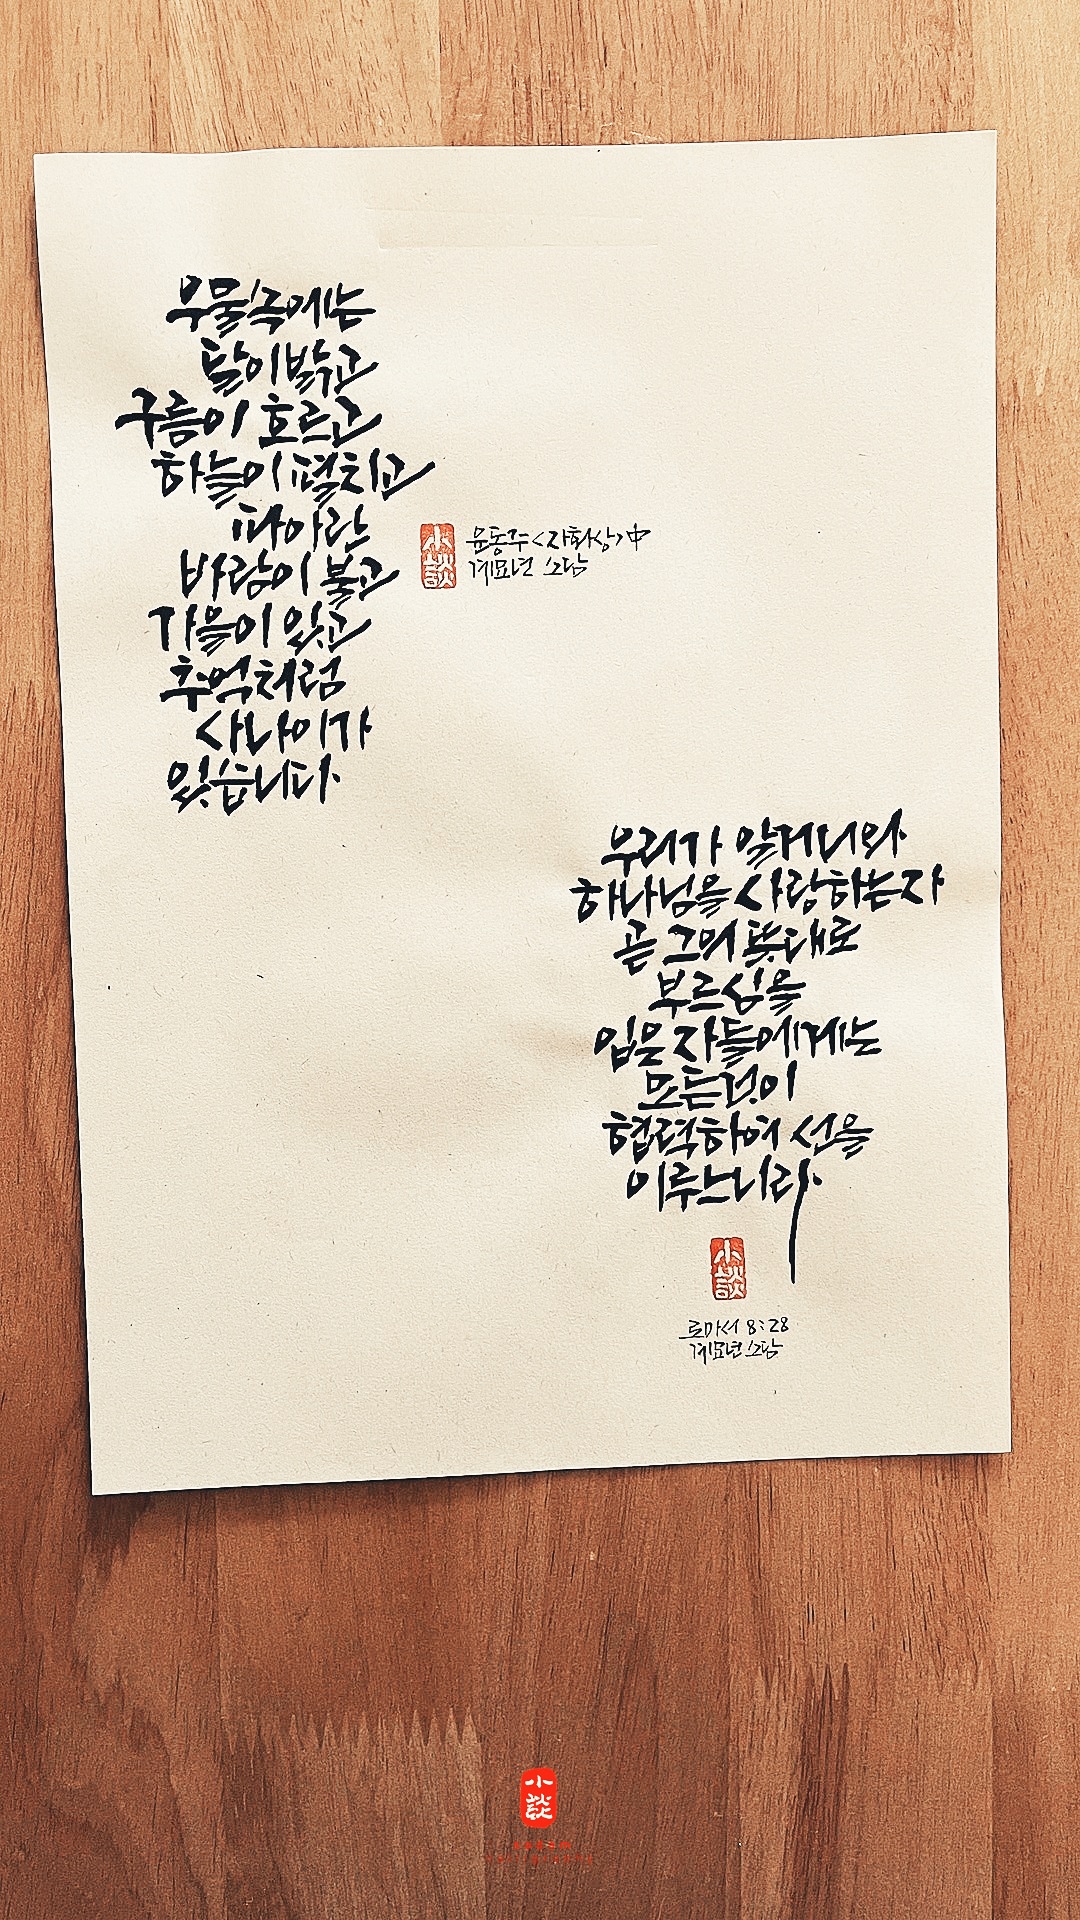 우물속에는
달이 밝고
구름이 흐르고
하늘이 펼치고
파아란
바람이 불고
가을이 있고
추억처럼
사나이가
있습니다.
小談
윤동주 <자화상> 中
계묘년 소담
우리가 알거니와
하나님을 사랑하는 자
곧 그의 뜻대로
부르심을
입은 자들에게는
모든 것이
협력하여 선을
이루느니라.
小談
로마서 8:28
계묘년 소담
小談